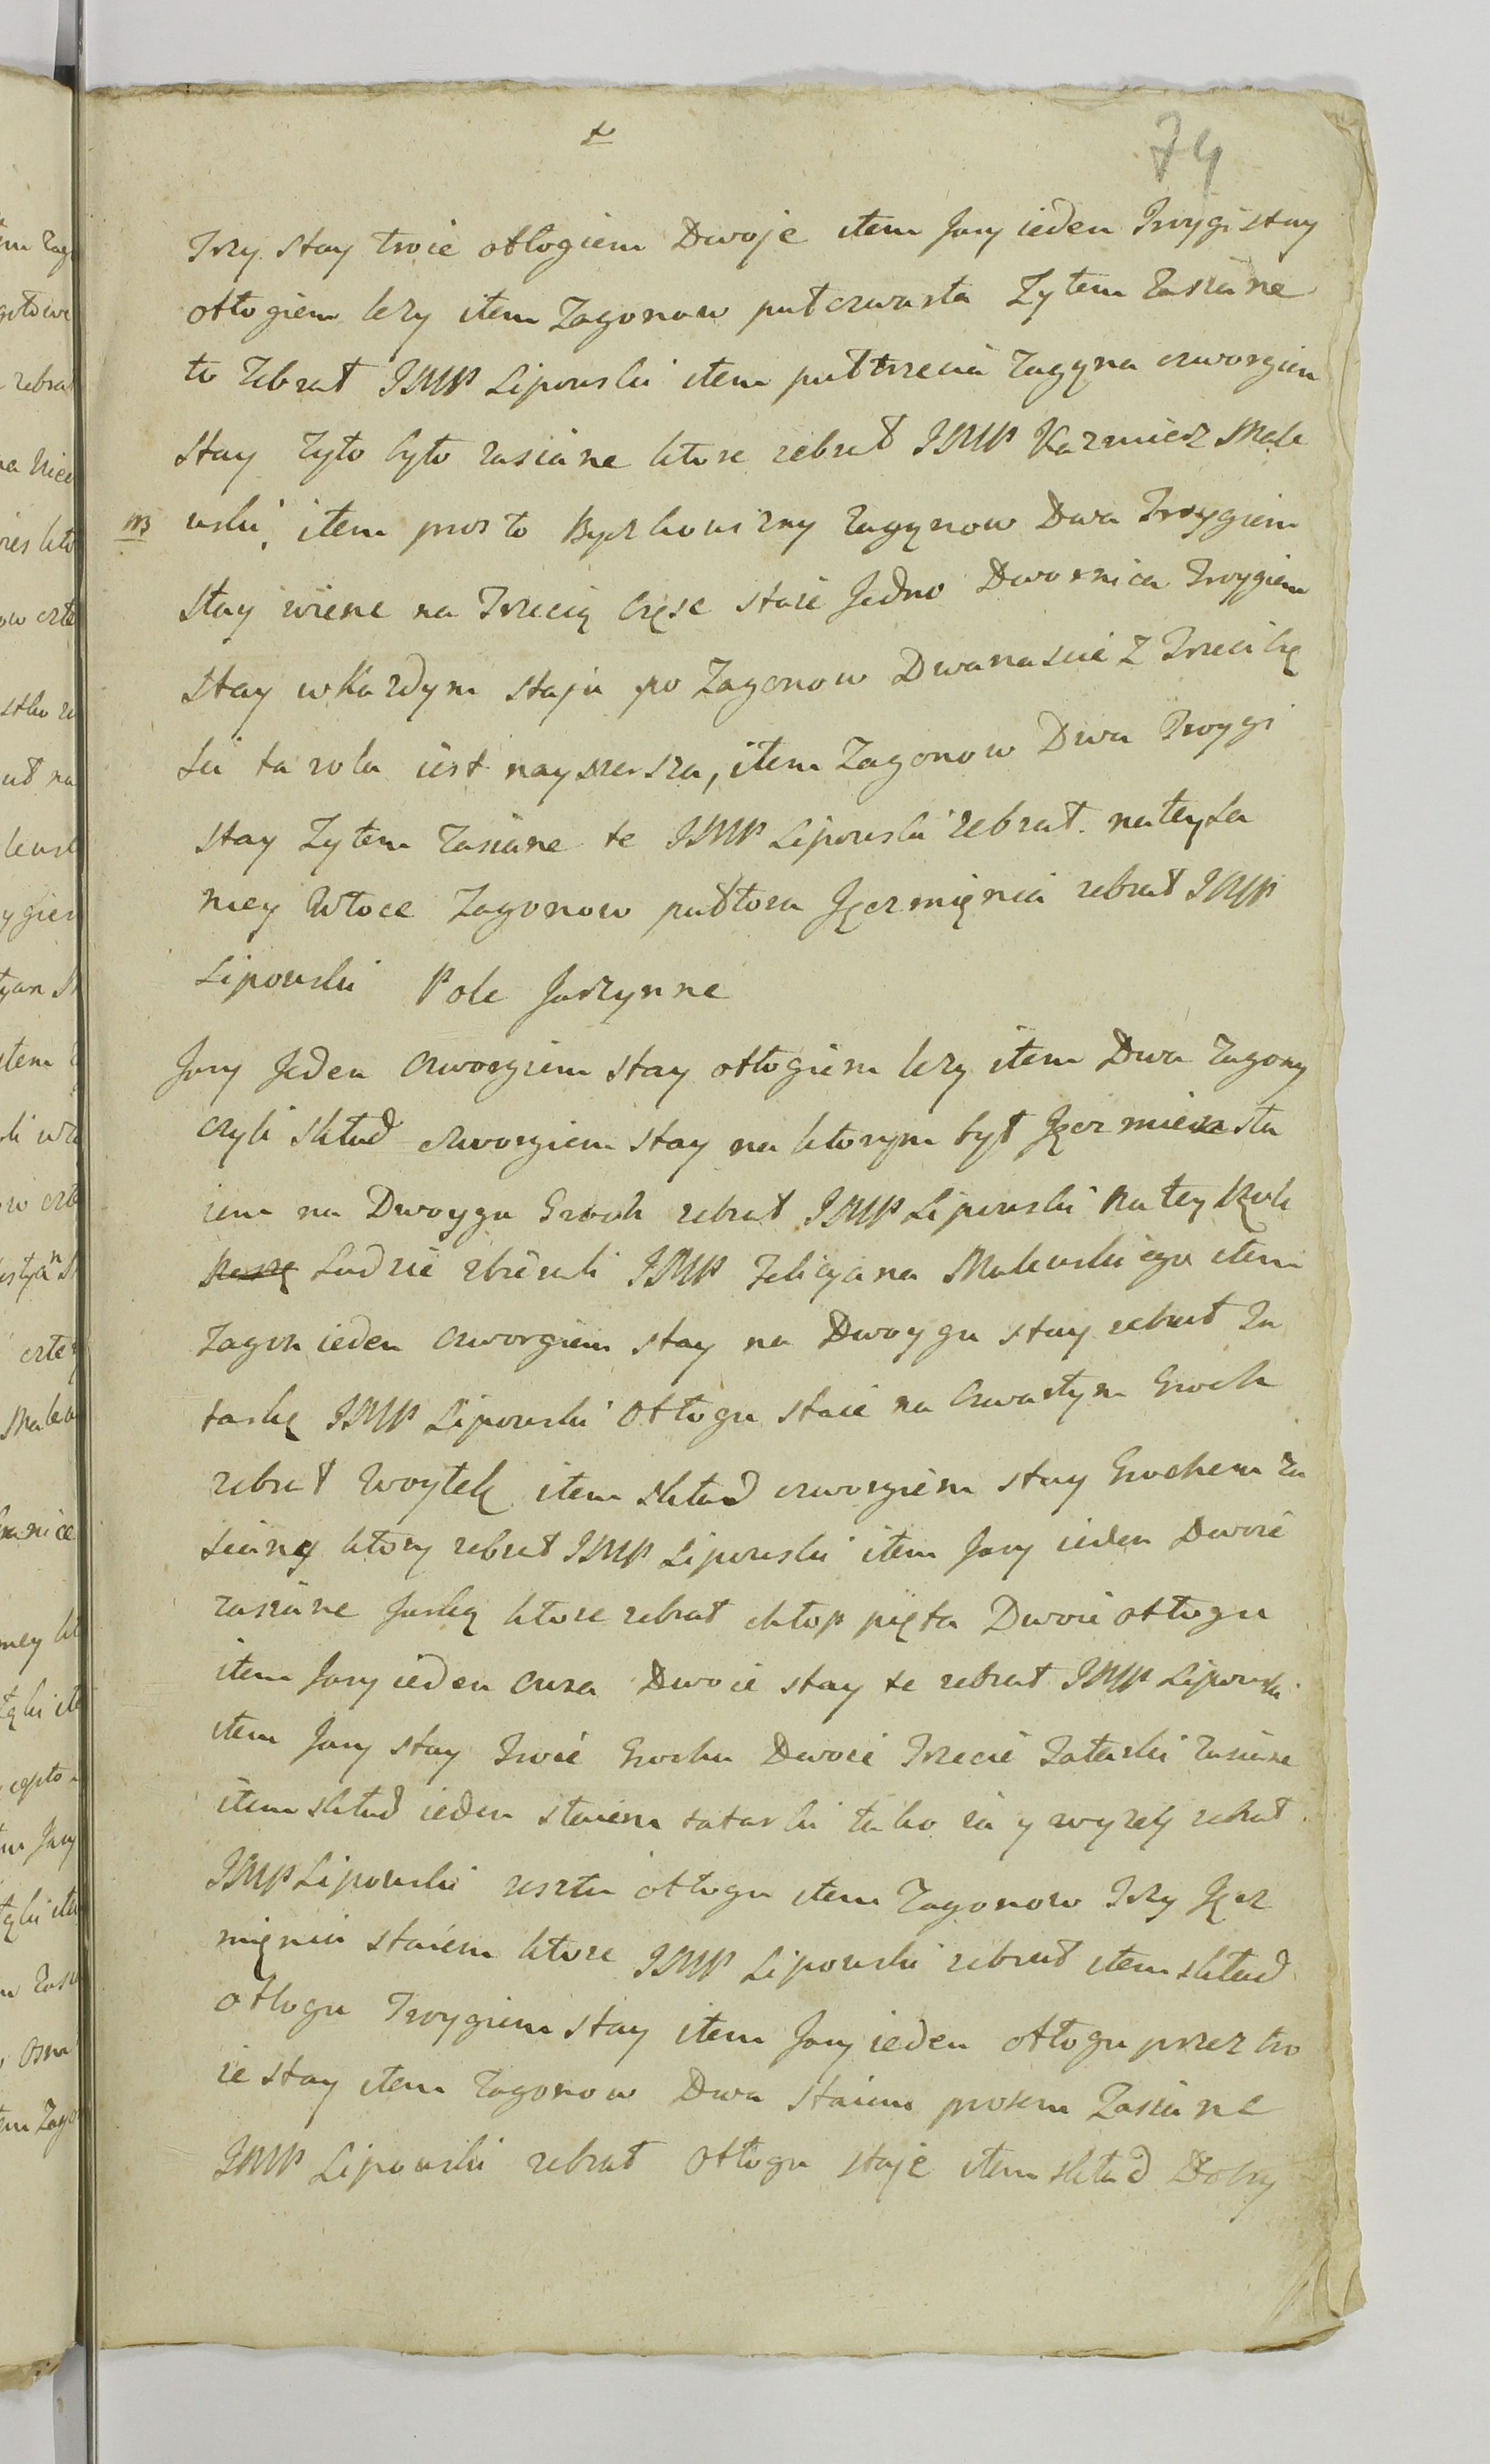 74
Trzy Stay troie obłogiem Dwoje item Jary ieden Troygi stay
obłogiem lezy item Zagonow puł czwarta Zytem zasiane
to zebrał JMP Lipowski item pułtrzecia zagona czworgiem
Stay zyto było zasiane ktore zebrał JMP Kazmierz Male
NB wski, item prosto zagonow Dwa Troygiem
Stay na Trzecią częsc staie Jedno Dwornica Troygiem
Stay w Kazdym staju po Zagonow Dwanascie z Trzecihę
sci ta rola iest nayszersza, item Zagonow Dwa Troygi
stay Zytem zasiane te JMP Lipowski zebrał. na tey sa
mey Włoce Zagonow pułtora Jęczmięnia zebrał JMP
Lipowski Pole Jarzynne
Jary Jeden czworgiem Stay obłogiem lezy item Dwa zagony
czyli skład czworgiem Stay na ktorym był Jęczmien sta
iem na Dwoygu Groch zebrał JMP Lipowski na tey Roli
Ludzie zbierali JMP Felicyana Malewskiego item
Zagon ieden czworgiem stay na Dwoygu stay zebrał Ta
tarkę JMP Lipowski obłogu staie na czwartym Groch
zebrał Woytek item skład czworgiem stay Grochem za
siany ktory zebrał JMP Lipowski item Jary ieden Dwoie
zasiane Jarką ktore zebrał chłop pięta Dwoie obłogu
item Jary ieden owsa Dwoie stay te zebrał JMP Lipowski
item Jary stay Troie Grochu Dwoie Trzecie Tatarki zasiane
item skład ieden staiem tatarki tako ia y wyzey zebrał
JMP Lipowski reszta obłogu item Zagonow Trzy Jęcz
mięnia staiem ktore JMP Lipowski zebrał item skład
obłogu Troygiem stay item Jary ieden obłogu przez tro
ie stay item Zagonow Dwa staiem prosem Zasiane
JMP Lipowski zebrał obłogu staje item skład Dobry